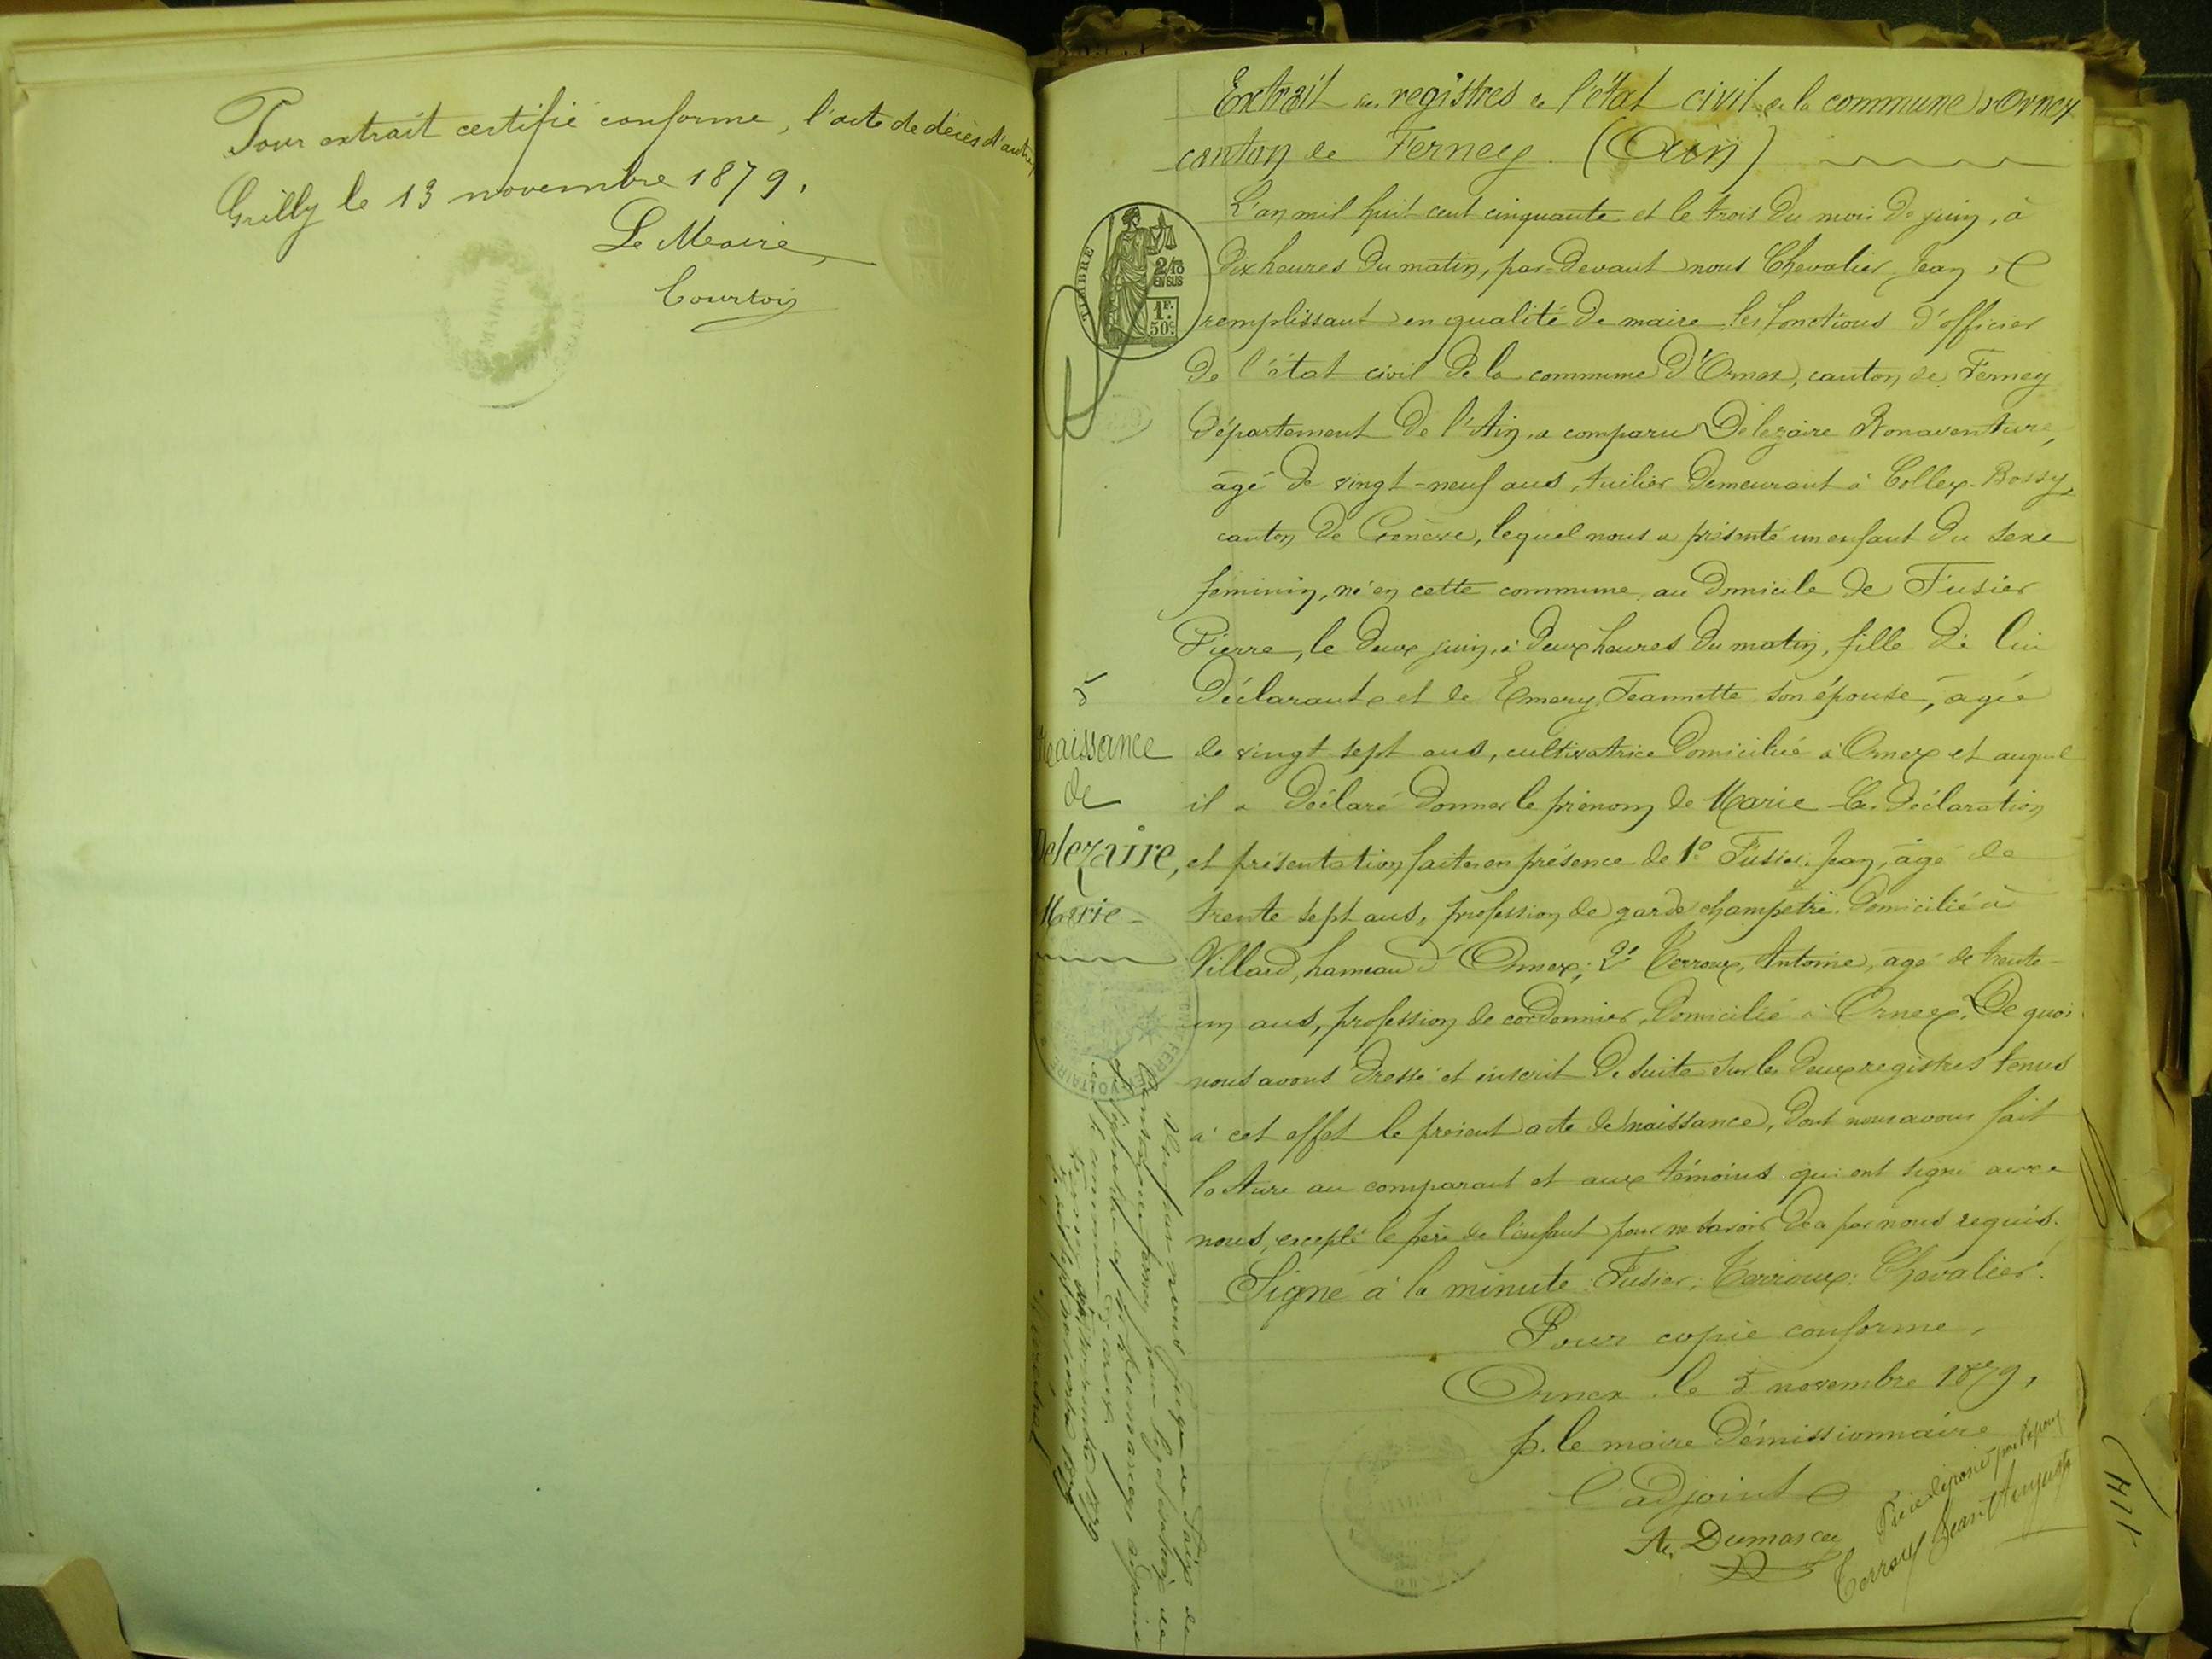 Pour extrait certifié conforme, l'acte de décès d'autre
Grilly le 13 novembre 1879.
Le Maire,
Courtois
Extrait des registres de l'état civil de la commune d'Ornex
canton de Ferney. (Ain)
TIMBRE
2/10
EN SUS
1F.
50c
L'an mil huit cent cinquante et le trois du mois de juin, à
dix heures du matin, par-devant nous Chevalier Jean,
remplissant en qualité de maire les fonctions d'officier
de l'état civil de la commune d'Ornex, canton de Ferney
département de l'Ain, a comparu Delezaire Bonaventure,
âgé de vingt-neuf ans, tuilier demeurant à Collex-Bossy,
canton de Genève, lequel nous a présenté un enfant du sexe
feminin, né en cette commune, au domicile de Fusier
Pierre, le deux juin, à deux heures du matin, fille de lui
déclarant et de Emery Jeannette son épouse, âgée
de vingt sept ans, cultivatrice domiciliée à Ornex et auquel
il a déclaré donner le prénom de Marie - Les déclaration
et présentation faites en présence de 1° Fusier, Jean, âgé de
trente sept ans, profession de garde champêtre, domicilié à
Villard, hameau d'Ornex; 2° Terroux, Antoine, âgé de trente-
un ans, profession de cordonnier, domicilié à Ornex. De quoi
nous avons dressé et inscrit de suite sur les deux registres tenus
à cet effet le présent acte de naissance, dont nous avons fait
lecture au comparant et aux témoins qui ont signé avec
nous, excepté le père de l'enfant pour ne savoir de a par nous requis.
Signé à la minute: Fusier; Terroux; Chevalier.
Pour copie conforme,
Ornex le 5 novembre 1879,
p. le maire démissionnaire
l'adjoint
A. Dumarca
Pièce déposée par l'époux
Terroux Jean Auguste
5
Naissance
de
Delezaire,
Marie -
Vu par nous Juge de Paix de
canton de Ferney pour légalisation de
la signature de M. Dumarca adjoint
de la commune d'Ornex.